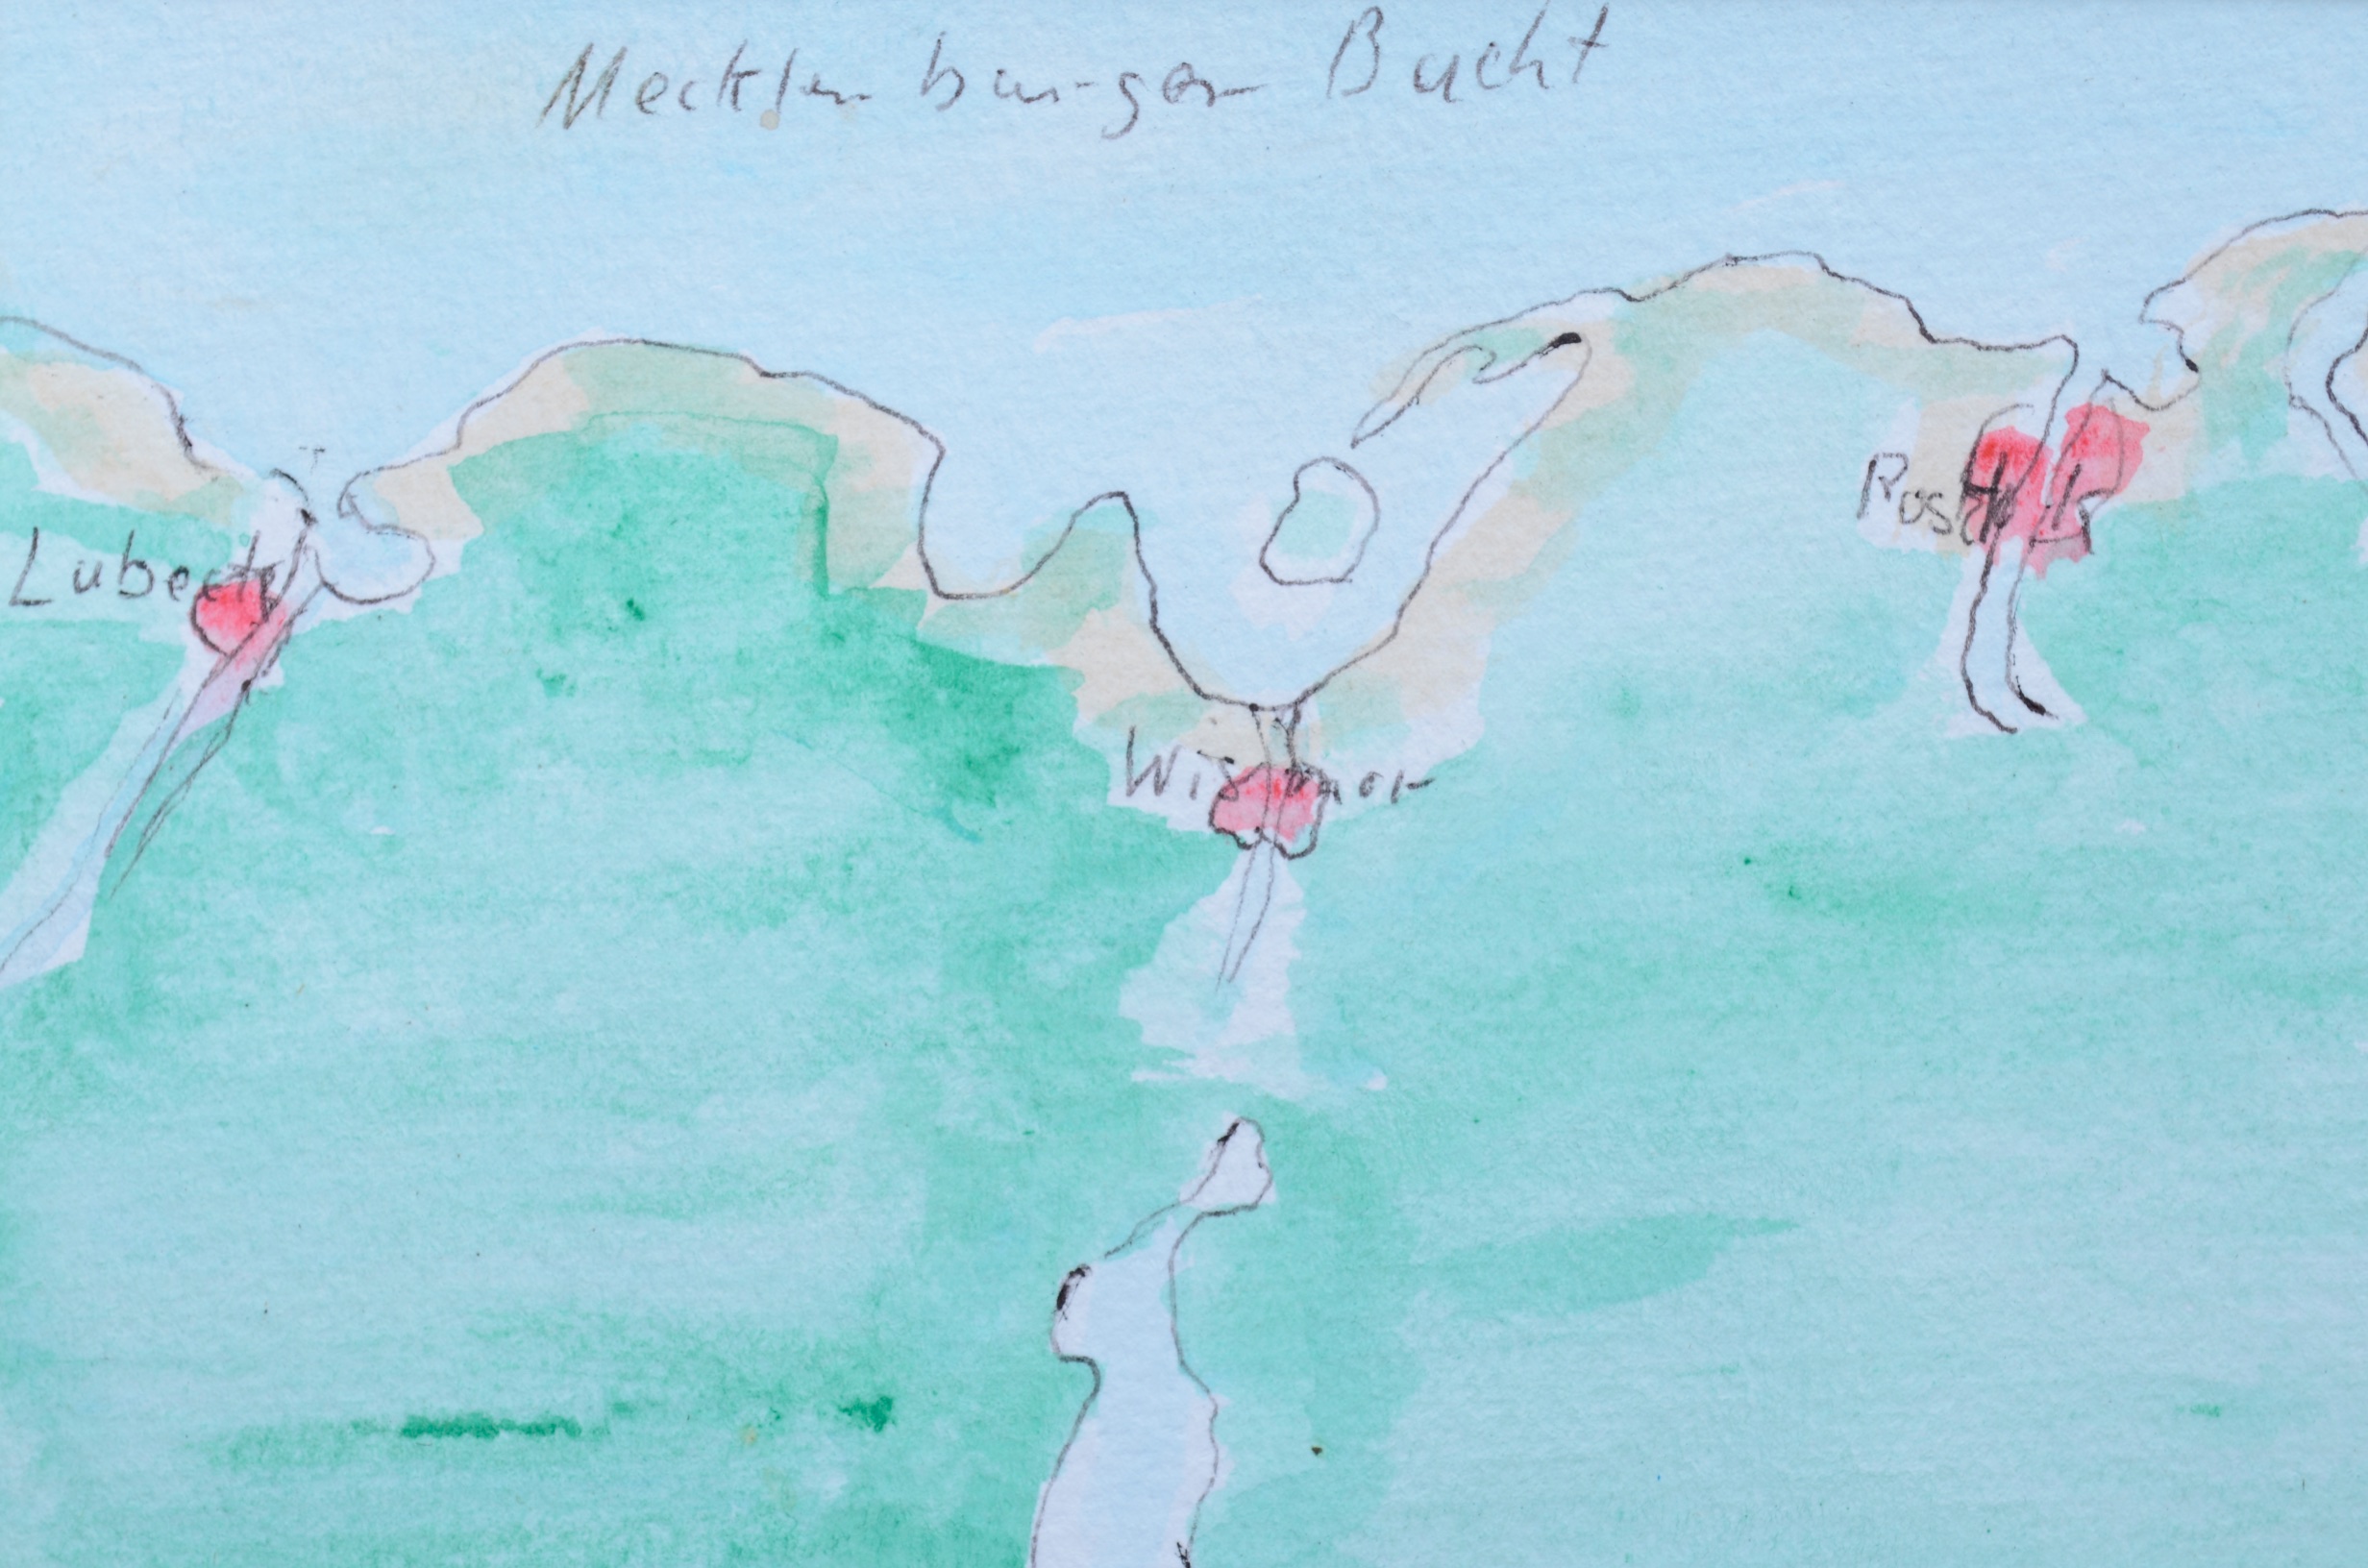 Mecklenburger Bucht
Lubeck
Wismar
Rostock